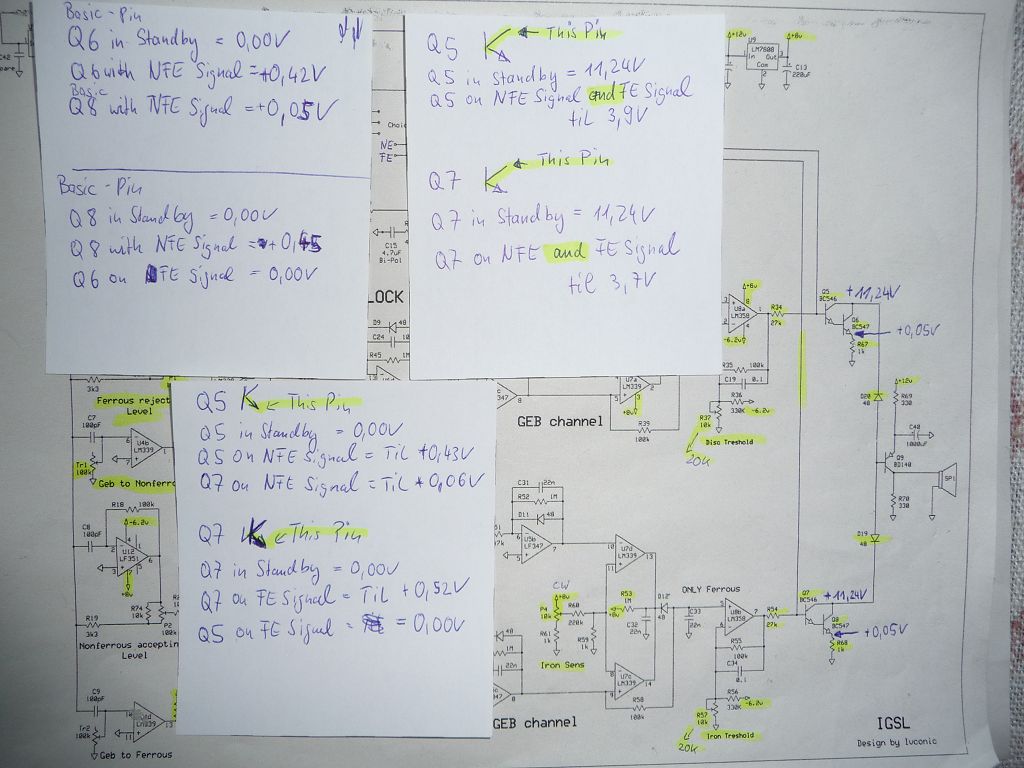 Basic-Pin
Q6 in Standby = 0,00V
Q6 with NFE Signal = +0,42V
Basic
Q8 with NFE Signal = +0,05V
Basic-Pin
Q8 in Standby = 0,00V
Q8 with NFE Signal = + 0,45
Q6 on FE Signal = 0,00V
Q5 This Pin
Q5 in Standby = 11,24V
Q5 on NFE Signal and FE Signal
til 3,9V
Q7 This Pin
Q7 in Standby = 11,24V
Q7 on NFE and FE Signal
til 3,7V
Q5 This Pin
Q5 in Standby = 0,00V
Q5 on NFE Signal = TiL +0,43V
Q7 on NFE Signal = TiL +0,06V
Q7 This Pin
Q7 in Standby = 0,00V
Q7 on FE Signal = TiL +0,52V
Q5 on FE Signal = 0,00V
C42
Choic
NE
FE
C15
4.7uF
Bi-Pol
LOCK
D9 48
C24
R45 1M
+12v
U9
LM7808
In Out
Com
+8v
C13
220uF
+8v
U8a
LM358
-6.2v
R34
27k
Q5
BC546
+11,24V
Q6
BC547
+0,05V
R67
1k
R35 100k
C19 0.1
R36
330K -6.2v
R37
10k
Disc Treshold
20K
U7a
LM339
+8v
R39
100k
GEB channel
D20
48
+12v
R69
330
C40
1000uF
Q9
BD140
SP1
R70
330
D19
48
3k3
Ferrous reject
Level
C7
100pF
U4b
LM339
Tr1
100k
Geb to Nonferro
R18 100k
C8
100pF
-6.2v
U12
LF351
+8v
R74
10k
R19
3k3
P2
100k
Nonferrous accepting
Level
C9
100pF
LM339
Tr2
100k
Geb to Ferrous
C31 22n
R52 1M
D11 48
U5b
LF347
U7d
LM339
CW
+8v
P4
10k
R60
220k
R61
1k
R59
1k
Iron Sens
R53
1M
+8v
C32
22n
D12
48
C33
22n
U7c
LM339
R58
100k
48
1M
22n
GEB channel
ONLY Ferrous
U8b
LM358
R54
27k
R55
100k
C34
0.1
R56
330K -6.2v
R57
10k
Iron Treshold
20K
Q7
BC546
+11,24V
Q8
BC547
+0,05V
R68
1k
IGSL
Design by Ivconic